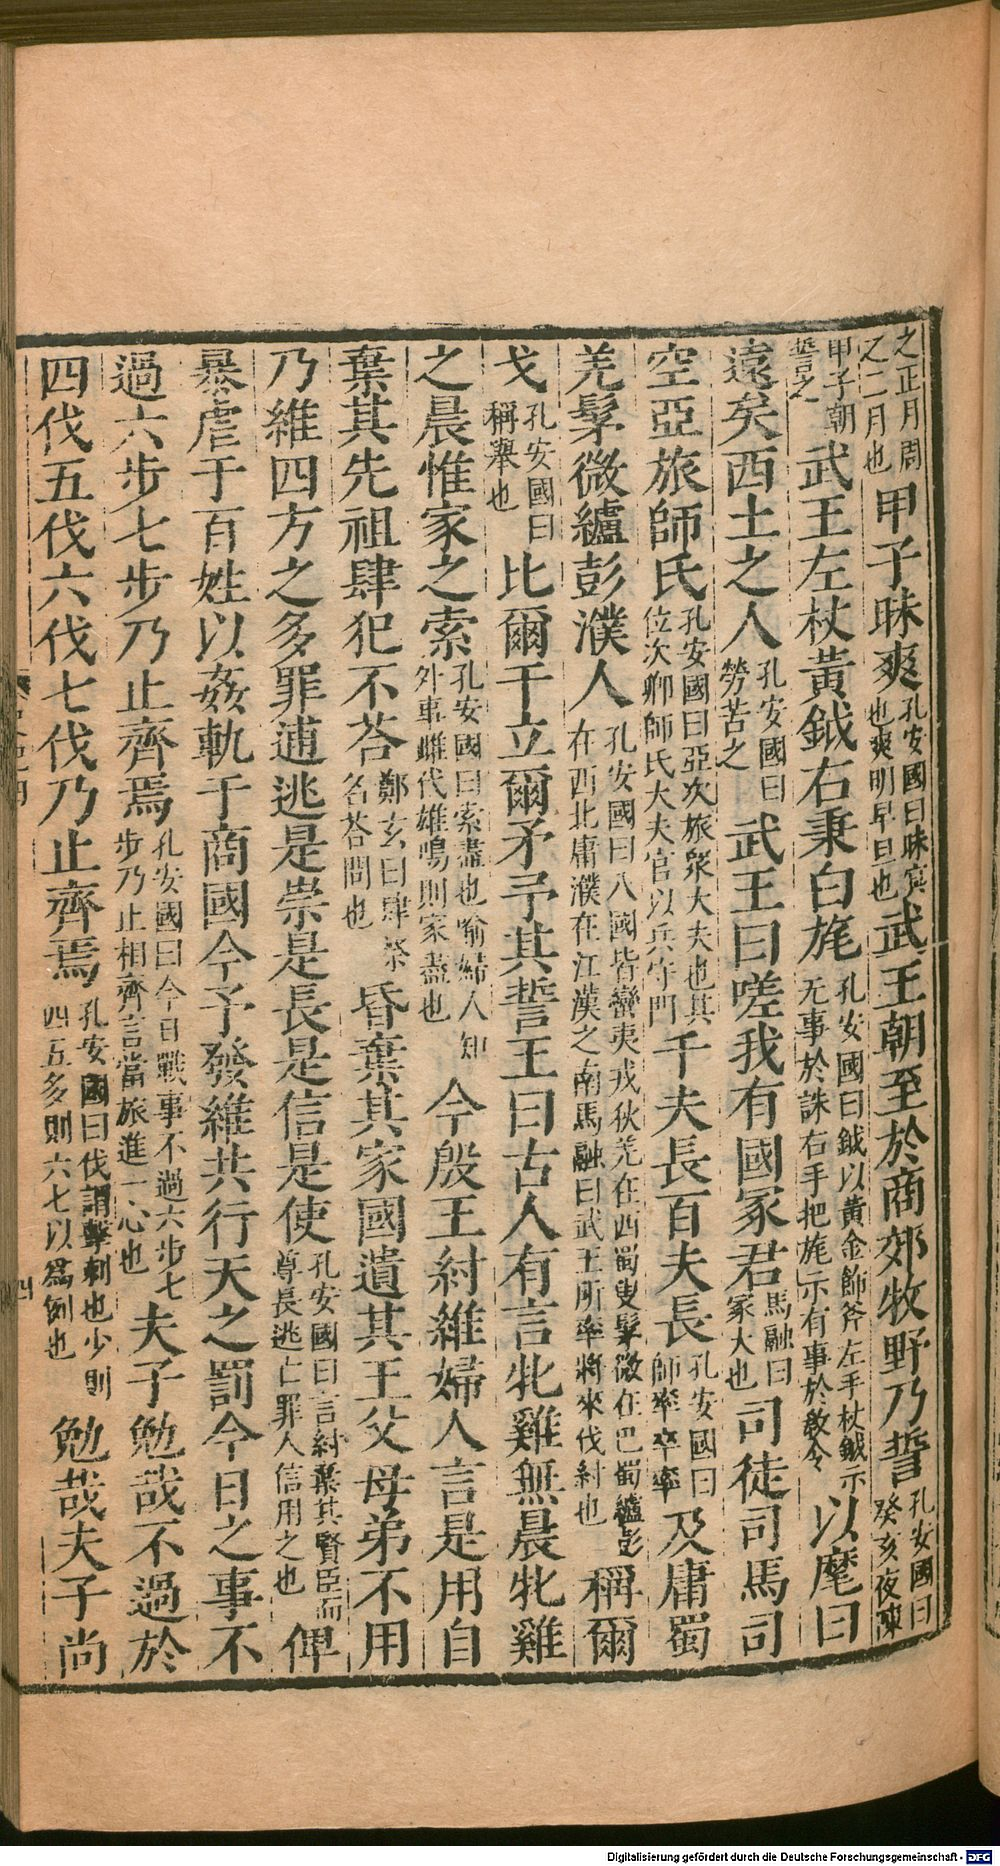 之正月周之二月也甲子昧爽孔安國曰昧冥也爽明早旦也武王朝至於商郊牧野乃誓孔安國曰癸亥夜陳
甲子朝誓之武王左杖黃鉞右秉白旄孔安國曰鉞以黃金飾斧左手杖鉞示无事於誅右手把旄示有事於敎令以麾曰
遠矣西土之人孔安國曰勞苦之武王曰嗟我有國冢君馬融曰冢大也司徒司馬司
空亞旅師氏孔安國曰亞次旅衆大夫也其位次卿師氏大夫官以兵守門千夫長百夫長孔安國曰師率卒率及庸蜀
羌髳微纑彭濮人孔安國曰八國皆蠻夷戎狄羌在西蜀叟髳微在巴蜀纑彭在西北庸濮在江漢之南馬融曰武王所率將來伐紂也稱爾
戈孔安國曰稱舉也比爾干立爾矛予其誓王曰古人有言牝雞無晨牝雞
之晨惟家之索孔安國曰索盡也喻婦人知外事雌代雄鳴則家盡也今殷王紂維婦人言是用自
棄其先祖肆祀不荅鄭玄曰肆祭名荅問也昏棄其家國遺其王父母弟不用
乃維四方之多罪逋逃是崇是長是信是使孔安國曰言紂棄其賢臣而尊長逃亡罪人信用之也俾
暴虐于百姓以姦軌于商國今予發維共行天之罰今日之事不
過六步七步乃止齊焉孔安國曰今日戰事不過六步七步乃止相齊言當旅進一心也夫子勉哉不過於
四伐五伐六伐七伐乃止齊焉孔安國曰伐謂擊刺也少則四五多則六七以爲例也勉哉夫子尚
四
Digitalisierung gefördert durch die Deutsche Forschungsgemeinschaft - DFG